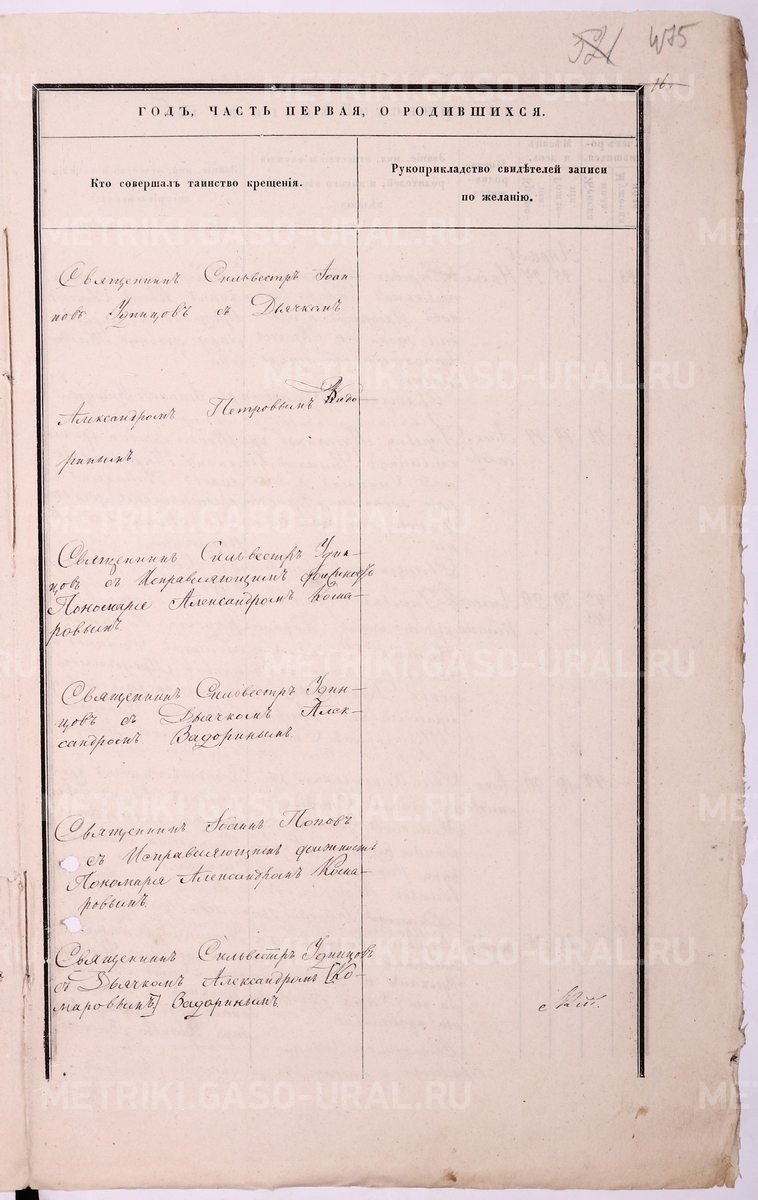 521 475
16.
ГОДЪ, ЧАСТЬ ПЕРВАЯ, О РОДИВШИХСЯ.
Кто совершалъ таинство крещенія.
Рукоприкладство свидѣтелей записи
по желанію.
Священникъ Сильвестръ Іоан-
новъ Удинцовъ съ Дьячкомъ
Александромъ Петровымъ Задо-
ринымъ.
Священникъ Сильвестръ Удин-
цовъ съ Исправляющимъ должность
Пономаря Александромъ Кома-
ровымъ.
Священникъ Сильвестръ Удин-
цовъ съ Дьячкомъ Алек-
сандромъ Задоринымъ.
Священникъ Іоаннъ Поповъ
съ Исправляющимъ должность
Пономаря Александромъ Кома-
ровымъ.
Священникъ Сильвестръ Удинцовъ
съ Дьячкомъ Александромъ [Ко-
маровымъ] Задоринымъ.
METRIKI.GASO-URAL.RU